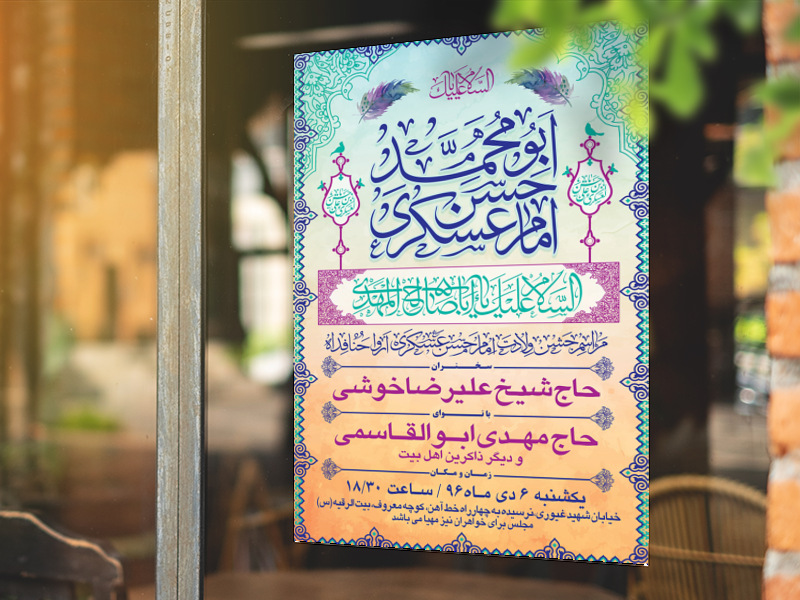 السلام علیک
ابومحمد
حسن
امام عسکری
السلام علیک یا اباصالح المهدی
مراسم جشن ولادت امام حسن عسکری ارواحنافداه
سخنران
حاج شیخ علیرضا خوشی
با نوای
حاج مهدی ابوالقاسمی
و دیگر ذاکرین اهل بیت
زمان و مکان
یکشنبه ۶ دی ماه ۹۶ / ساعت ۱۸/۳۰
خیابان شهید غیوری، نرسیده به چهارراه خط آهن، کوچه معروف، بیت الرقیه (س)
مجلس برای خواهران نیز مهیا می باشد